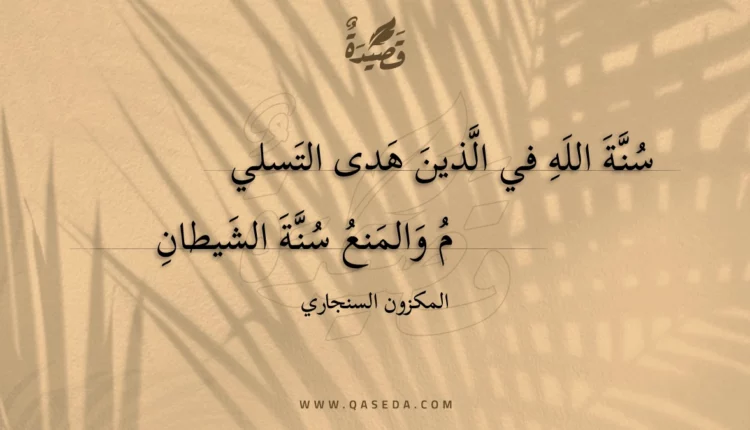 قَصِيْدَةٌ
سُنَّةَ اللَهِ في الَّذينَ هَدى التَسلي
مُ وَالمَنعُ سُنَّةَ الشَيطانِ
المكزون السنجاري
WWW.QASEDA.COM